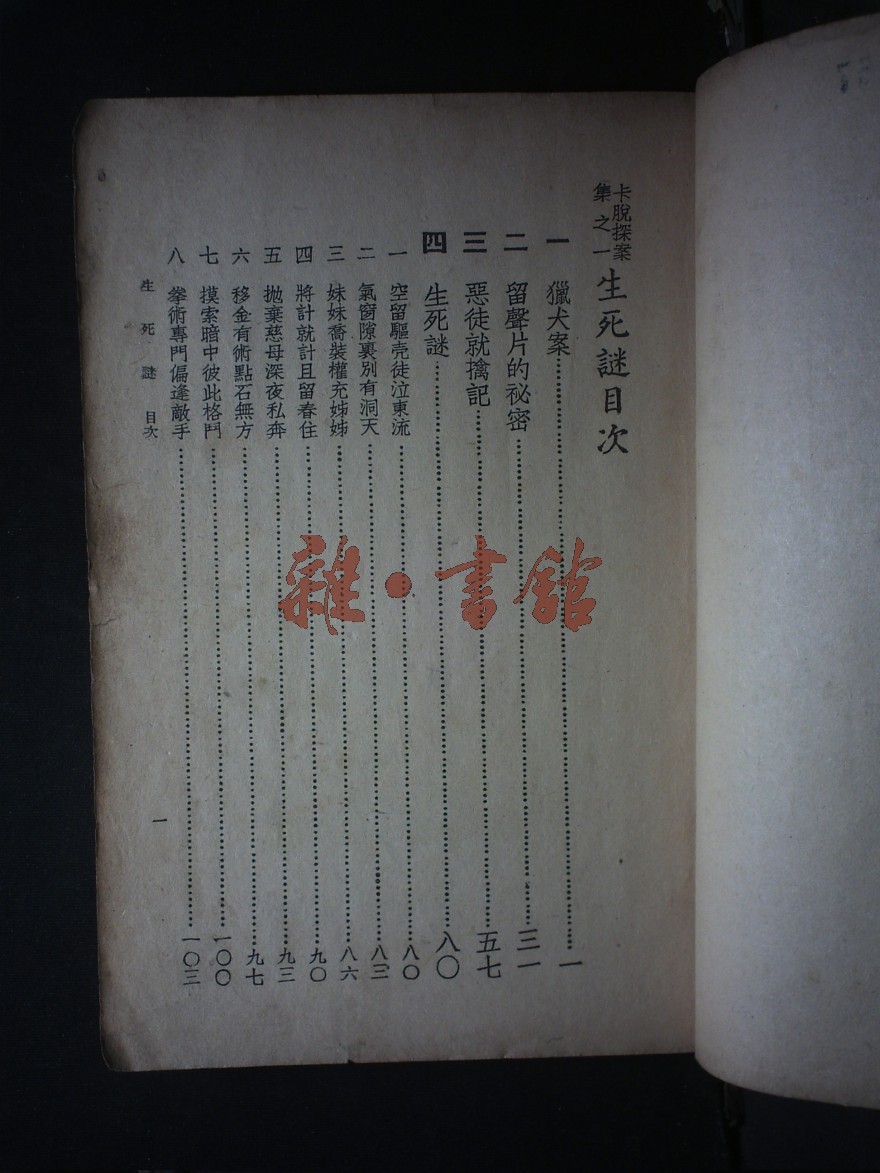 卡脫探案集之一 生死謎目次
一 獵犬案 一
二 留聲片的祕密 三一
三 惡徒就擒記 五七
四 生死謎 八〇
一 空留驅壳徒泣東流 八〇
二 氣窗隙裏別有洞天 八三
三 妹妹喬裝權充姊姊 八六
四 將計就計且留春住 九〇
五 拋棄慈母深夜私奔 九三
六 移金有術點石無方 九七
七 摸索暗中彼此格鬥 一〇〇
八 拳術專門偏逢敵手 一〇三
生死謎 目次 一
雜·書館